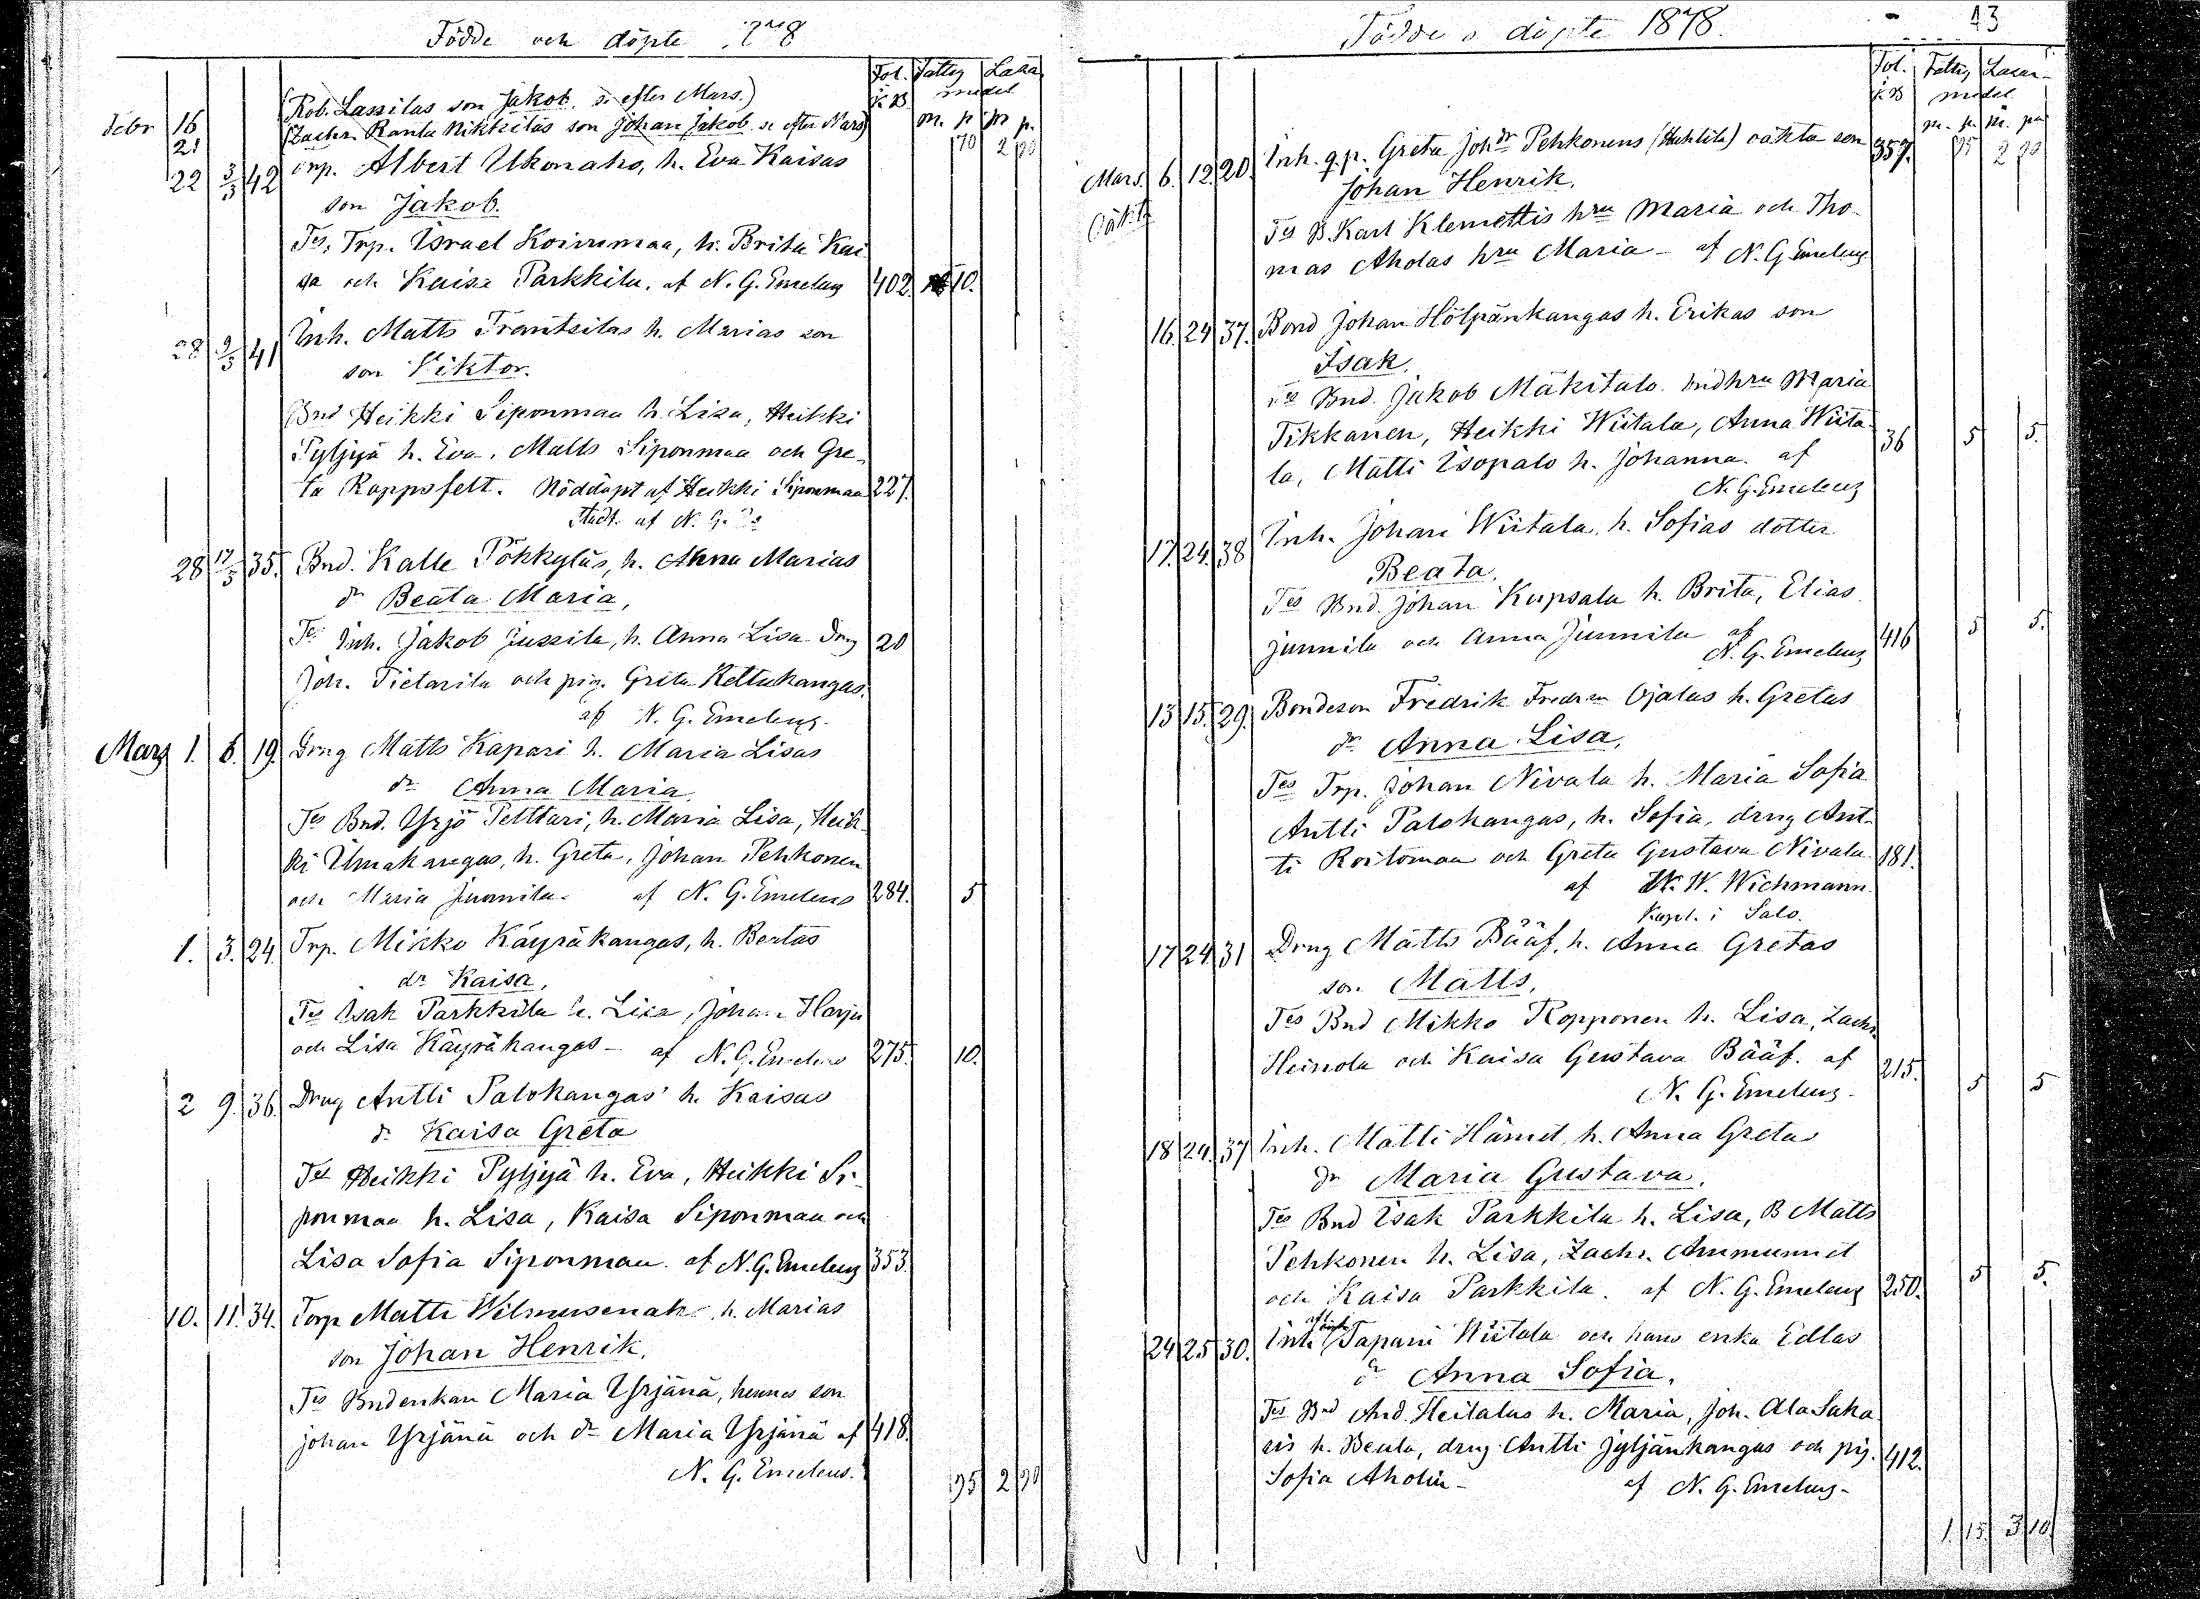 Födde och döpte 1878
Fol. Fattig Lasa
k B medel
m. p m p.
Febr 16 (Rob. Lassilas son Jakob. se efter Mars.)
21 (Zachr. Ranta Nikkiläs son Johan Jakob se efter Mars)
70 2 90
22 3/3 42 Trp. Albert Ukonaho, h. Eva Kaisas
son Jakob.
Tes. Trp. Israel Koivumaa, h. Brita Kai
sa och Kaisa Parkkila. af N. G. Emeleus 402 10.
28 9/3 41 Inh. Matts Frantsilas h. Marias son
son Viktor.
Bnd Heikki Siponmaa h. Lisa, Heikki
Pyljyä h. Eva, Matts Siponmaa och Gre-
ta Roppsfelt. Nöddöpt af Heikki Siponmaa 227.
Stadf. af N. G. Es
28 17/3 35. Bnd. Kalle Pökkyläs, h. Anna Marias
dr Beata Maria,
Tes Inh. Jakob Jussila, h. Anna Lisa Drng 20
Joh. Pietarila och pig. Greta Kettukangas.
af N. G. Emeleus.
Mars 1. 6. 19. Drng Matts Kapari h. Maria Lisas
dr Anna Maria
Tes Bnd. Yrjö Pelttari, h. Maria Lisa, Heik
ki Ulmakangas, h. Greta, Johan Pehkonen
och Maria Junnila. af N. G. Emeleus 284. 5
1. 3. 24. Trp. Mikko Käyräkangas, h. Bertas
dr Kaisa,
Tes Isak Parkkila h. Lisa, Johan Harju
och Lisa Käyräkangas - af N. G. Emeleus 275. 10.
2 9. 36. Drng Antti Palokangas' h. Kaisas
dr Kaisa Greta
Tes Heikki Pyljyä h. Eva, Heikki Si-
ponmaa h. Lisa, Kaisa Siponmaa och
Lisa Sofia Siponmaa. af N. G. Emeleus 353.
10. 11. 34. Torp Matti Wilmusenaho, h. Marias
son Johan Henrik.
Tes Bndenkan Maria Yrjänä, hennes son
Johan Yrjänä och dr Maria Yrjänä af 418.
N. G. Emeleus.
95 2 90
Födde o döpte 1878. 43
Fol. Fattig Lasar-
k B medel
m. p. m. p.
Mars. 6. 12. 20. Inh. q.p. Greta Johdr Pehkonens (Huhtila) oäkta son 357. 95 2 90
Johan Henrik.
Oäkta
Tes B. Karl Klemettis hru Maria och Tho-
mas Aholas hru Maria - af N. G. Emeleus
16. 24 37. Bond Johan Hölpänkangas h. Erikas son
Isak.
Tes Bnd. Jakob Mäkitalo. bndhru Maria
Tikkanen, Heikki Wiitala, Anna Wiita-
la, Matti Isopalo h. Johanna. af 36 5 5.
N. G. Emeleus
17. 24. 38 Inh. Johan Wiitala, h. Sofias dotter
Beata.
Tes Bnd. Johan Kupsala h. Brita, Elias
Junnila och Anna Junnila af 416 5 5.
N. G. Emeleus
13 15. 29. Bondeson Fredrik Fredrsn Ojalas h. Gretas
dr Anna Lisa,
Tes Trp. Johan Nivala h. Maria Sofia
Antti Palokangas, h. Sofia, drng Ant-
ti Roitomaa och Greta Gustava Nivala 181.
af W. W. Wichmann
Kapl. i Salo.
17 24 31 Drng Matts Bååf, h. Anna Gretas
son Matts.
Tes Bnd Mikko Kopponen h. Lisa, Zachr
Heinola och Kaisa Gustava Bååf. af 215. 5 5
N. G. Emeleus.
18 24. 37 Inh. Matti Hämet, h. Anna Gretas
dr Maria Gustava.
Tes Bnd Isak Parkkila h. Lisa, B Matts
Pehkonen h. Lisa, Zachr. Ammunnet
och Kaisa Parkkila. af N. G. Emeleus 250. 5 5.
24 25 30. Inh. Tapani Wiitala och hans enka Edlas
dr Anna Sofia.
Tes Bnd And. Heitalas h. Maria, Joh. AlaSaka
ris h. Beata, drng Antti Jyljänkangas och pig. 412.
Sofia Ahola - af N. G. Emeleus -
1. 15 3 10